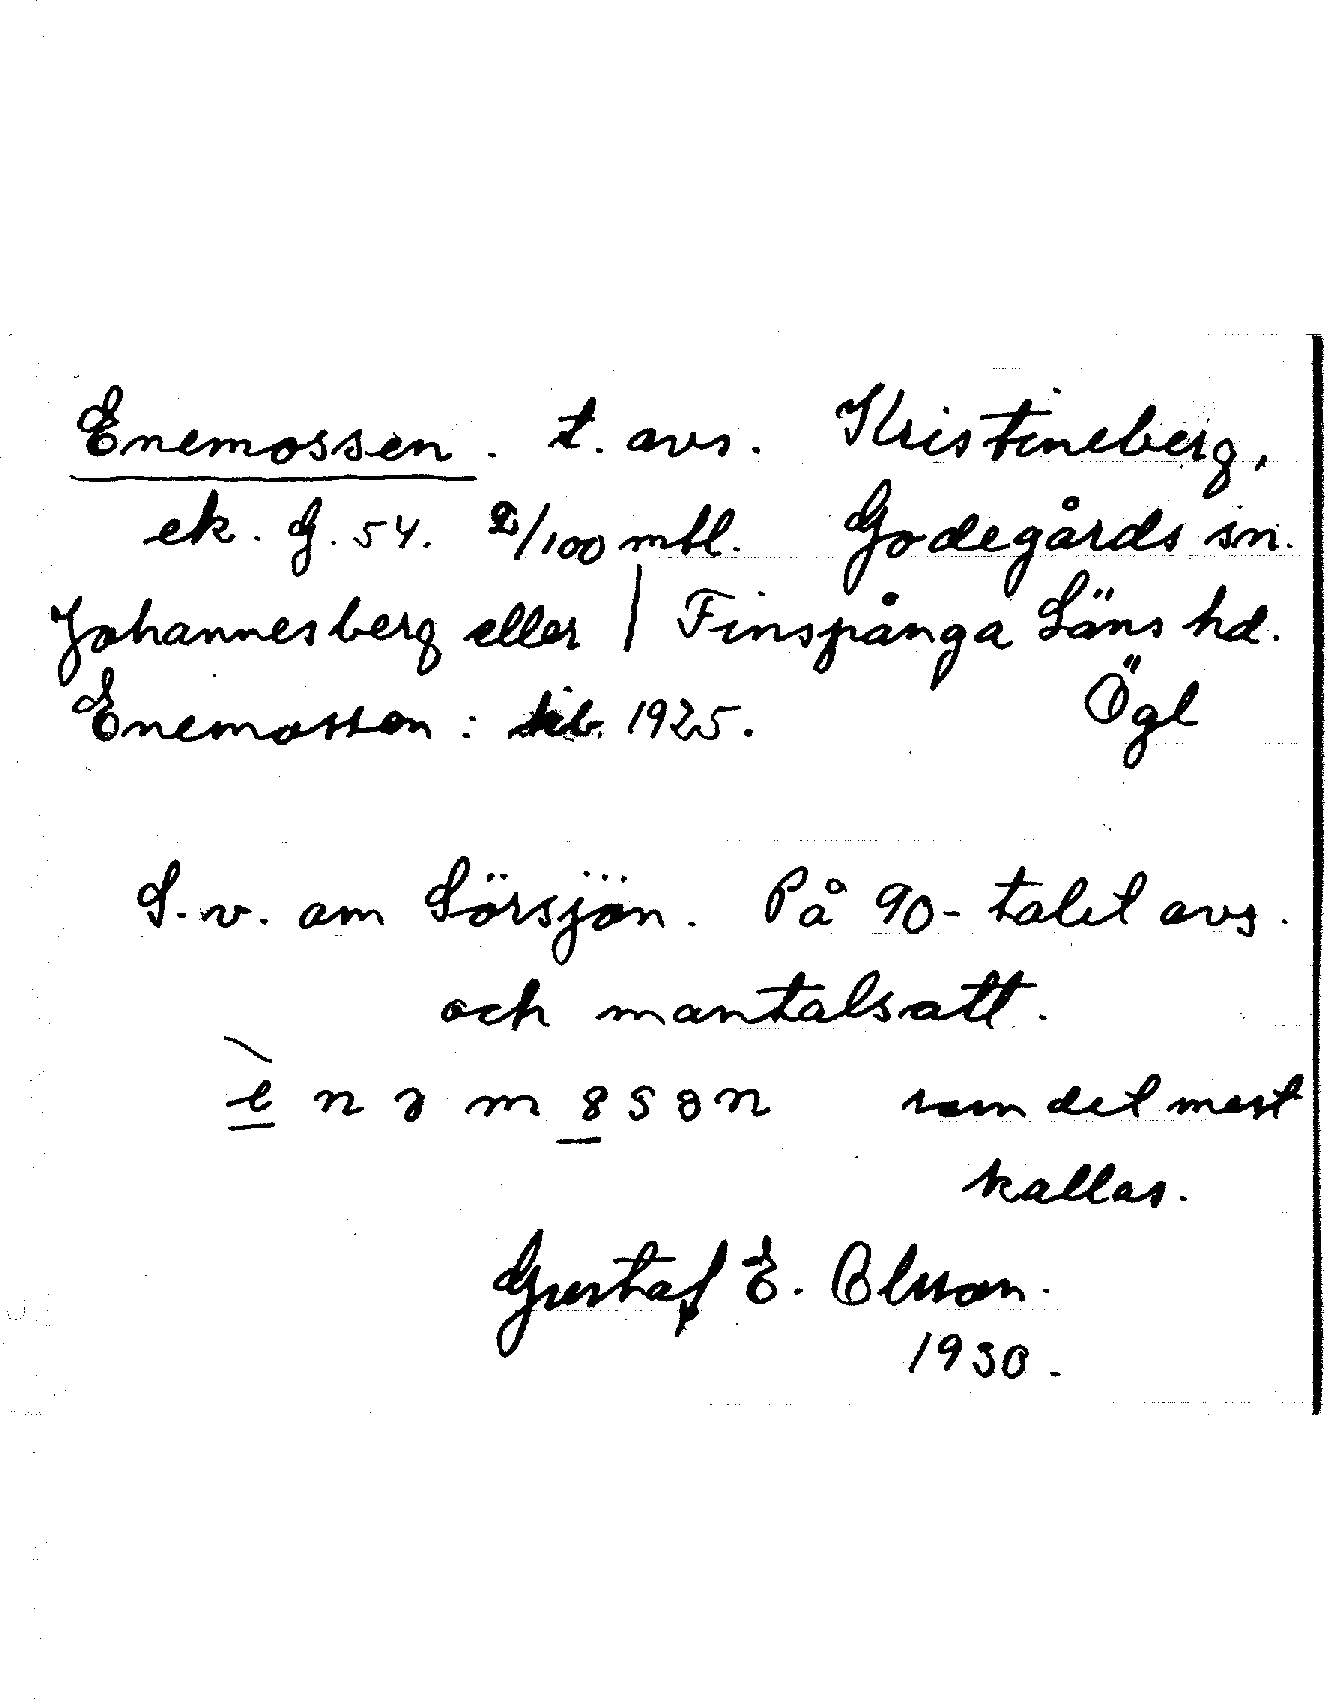 Enemossen. t. avs. Kristineberg,
ek. G. 54. 2/100 mtl. Godegårds sn.
Johannesberg eller | Finspånga Läns hd.
Enemossen: 1925. Ögl
S. v. om Sörsjön. På 90-talet avs.
och mantalsatt.
e n ə m 8 s ə n som det mest
kallas.
Gustaf E. Olsson.
1930.